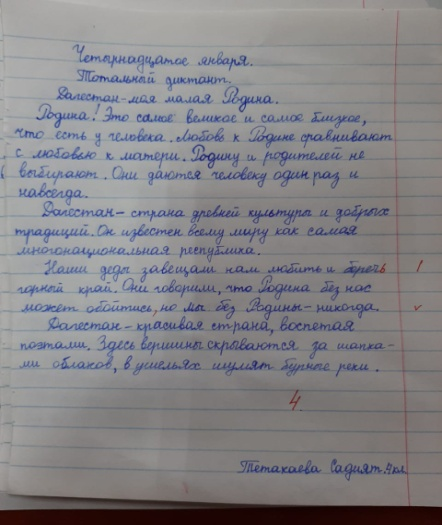 Четырнадцатое января.
Тотальный диктант.
Дагестан-моя малая Родина.
Родина! Это самое великое и самое близкое,
что есть у человека. Любовь к Родине сравнивают
с любовью к матери. Родину и родителей не
выбирают. Они даются человеку один раз и
навсегда.
Дагестан- страна древней культуры и добрых
традиций. Он известен всему миру как самая
многонациональная республика.
Наши деды завещали нам любить и беречь !
горный край. Они говорили, что Родина без нас
может обойтись, но мы без Родины- никогда. v
Дагестан- красивая страна, воспетая
поэтами. Здесь вершины скрываются за шапка-
ми облаков, в ущельях шумят бурные реки.
4
Тетакаева Садият. 4кл